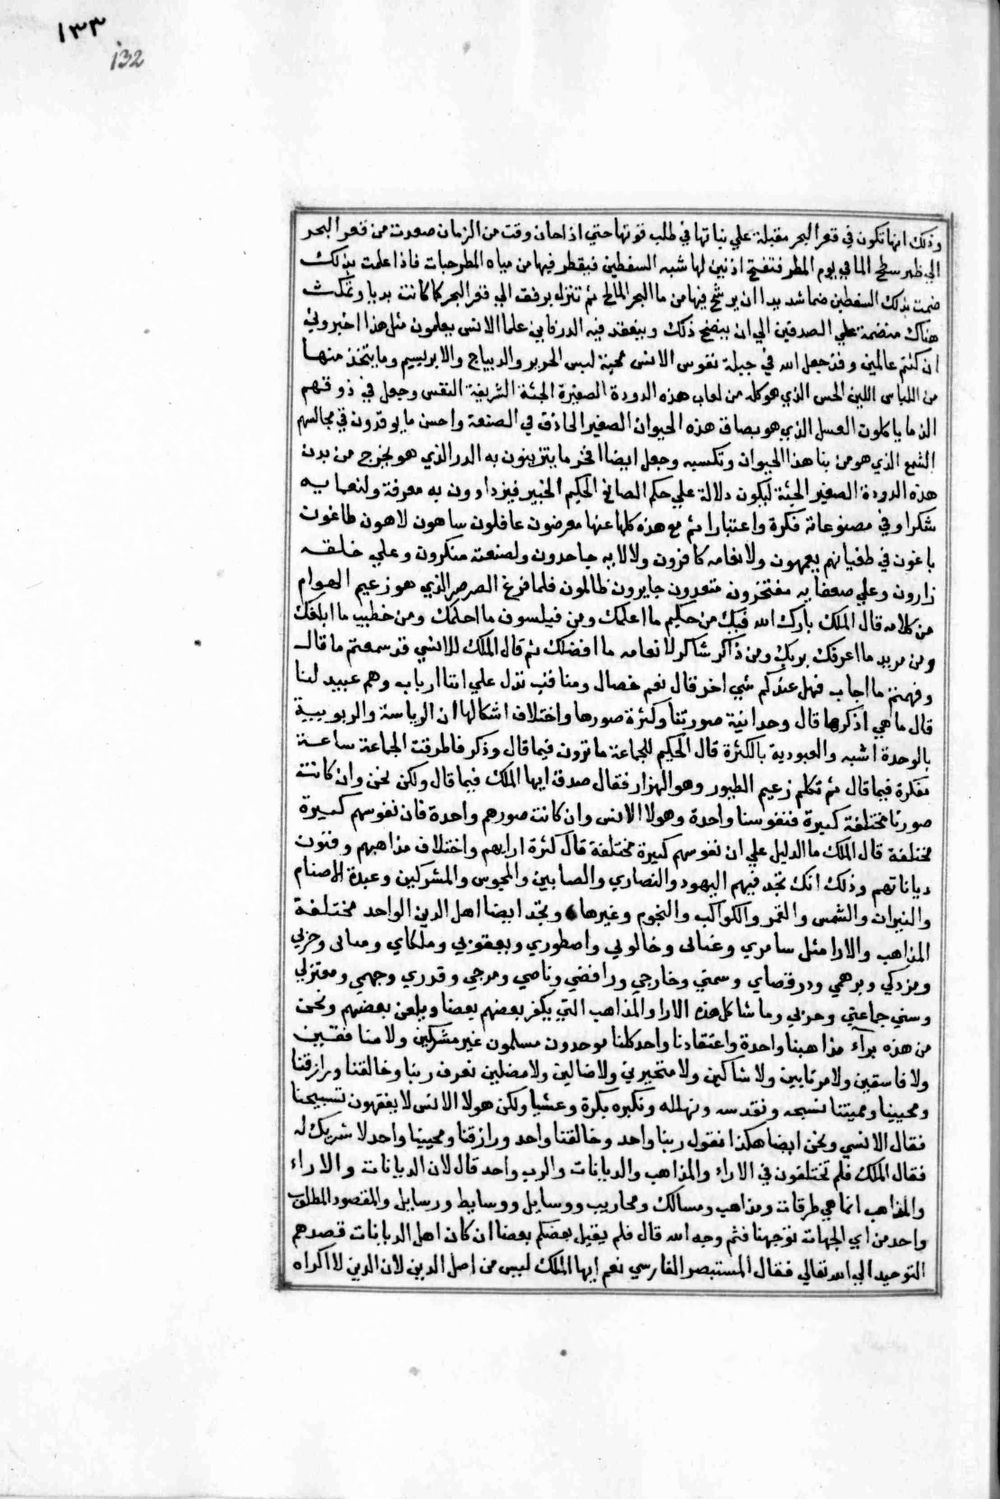 ١٣٣
132
وذلك انها تكون في قعر البحر مقبلة علي نباتها في طلب قوتها حتي اذا حان وقت من الزمان صعدت من قعر البحر
الي ظهر سطح الما في يوم المطر فتفتح اذنين لها شبه السفطين فيقطر فيها من مياه المطر حبات فاذا علمت بذلك
ضمت بذلك السفطين ضما شديدا ان يرشح فيها من ما البحر المالح ثم تنزل برفق الي قعر البحر كما كانت بديا وتمكث
هناك منضمة علي الصدفين الي ان ينضج ذلك وينعقد فيه الدر فاي علما الانس يعلمون مثل هذا اخبروني
ان كنتم عالمين وقد جعل الله في جبلة نفوس الانس محبة لبس الحرير والديباج والابريسيم وما يتخذ منها
من اللباس اللين الحس الذي هو كله من لعاب هذه الدودة الصغيرة الجثة الشريفة النفس وجعل في ذوقهم
الذ ما ياكلون العسل الذي هو بصاق هذه الحيوان الصغير الحاذق في الصنعة واحسن ما يوقدون في مجالسهم
الشمع الذي هو من بنا هذا الحيوان وتكسبه وجعل ايضا افخر ما يتزينون به الدر الذي هو يخرج من بدن
هذه الدودة الصغير الجثة ليكون دلالة علي حكم الصانع الحكيم الخبير فيزدادوون به معرفة ولنعمايه
شكرا وفي مصنوعاته فكرة واعتبارا ثم مع هذه كلها عنها معرضون غافلون ساهون لاهون طاغوت
باغون في طغيانهم يعمهون ولانعامه كافرون ولالايه جاحدون ولصنعته منكرون وعلي خلقه
زارون وعلي ضعفايه مفتخرون متعدون جايرون ظالمون فلما فرغ الصرصر الذي هو زعيم الهوام
من كلامه قال الملك بارك الله فيك من حكيم ما اعلمك ومن فيلسوف ما احكمك ومن خطيب ما ابلغك
ومن مريد ما اعرفك بربك ومن ذاكر شاكر لانعامه ما افضلك ثم قال الملك للانسي قد سمعتم ما قال
وفهمتم ما اجاب فهل عندكم شي اخر قال نعم خصال ومناقب تدل علي اننا ارباب وهم عبيد لنا
قال ما هي اذكرها قال وحدانية صورتنا وكثرة صورها واختلاف اشكالها ان الرياسة والربوبيية
بالوحدة اشبه والعبودية بالكثرة قال الحكيم للجماعة ما ترون فيما قال وذكر فاطرقت الجماعة ساعة
مفكرة فيما قال ثم تكلم زعيم الطيور وهو الهزار فقال صدق ايها الملك فيما قال ولكن نحن وان كانت
صورنا مختلفة كبيرة فنفوسنا واحدة وهولا الانس وان كانت صورهم واحدة فان نفوسهم كبيرة
مختلفة قال الملك ما الدليل علي ان نفوسهم كبيرة مختلفة قال كثرة ارايهم واختلاف مذاهبهم وفنون
دياناتهم وذلك انك تجد فيهم اليهود والنصاري والصابين والمجوس والمشركين وعبدة الاصنام
والنيران والشمس والقمر والكواكب والنجوم وغيرها وتجد ايضا اهل الدين الواحد مختلفة
المذاهب والارا مثل سامري وعناني وخالوتي واصطوري ويعقوبي وملكاي وماني وحزبي
ومزدكي وبرهمي وديصاي وسمتي وخارجي ورافضي وناصي ومرجي وقدري وجهمي ومعتزلي
وسني جماعتي وحزبي وما شاكل هذه الارا والمذاهب التي يكفر بعضهم بعضا ويلعن بعضهم ونحن
من هذه برآء مذاهبنا واحدة واعتقادنا واحد كلنا موحدون مسلمون غير مشركين ولا منافقين
ولا فاسقين ولا مرتابين ولا شاكين ولا متحيرين ولا ضالين ولا مضلين نعرف ربنا وخالقنا ورازقنا
ومحيينا ومميتنا نسبحه ونقدسه ونهلله ونكبره بكرة وعشيا ولكن هولا الانس لا يفقهون تسبيحنا
فقال الانسي ونحن ايضا هكذا نقول ربنا واحد وخالقنا واحد ورازقنا ومحيينا واحد لا شريك له
فقال الملك فلم تختلفون في الاراء والمذاهب والديانات والرب واحد قال لان الديانات والاراء
والمذاهب انما هي طرقات ومذاهب ومسالك ومحاريب ووسايل ووسايط ورسايل والمقصود المطلب
واحد من اي الجهات توجهنا فثم وجه الله قال فلم يقتل بعضكم بعضا ان كان اهل الديانات قصدهم
التوحيد الي الله تعالي فقال المستبصر الفارسي نعم ايها الملك ليس من اصل الدين لان الدين لا اكراه